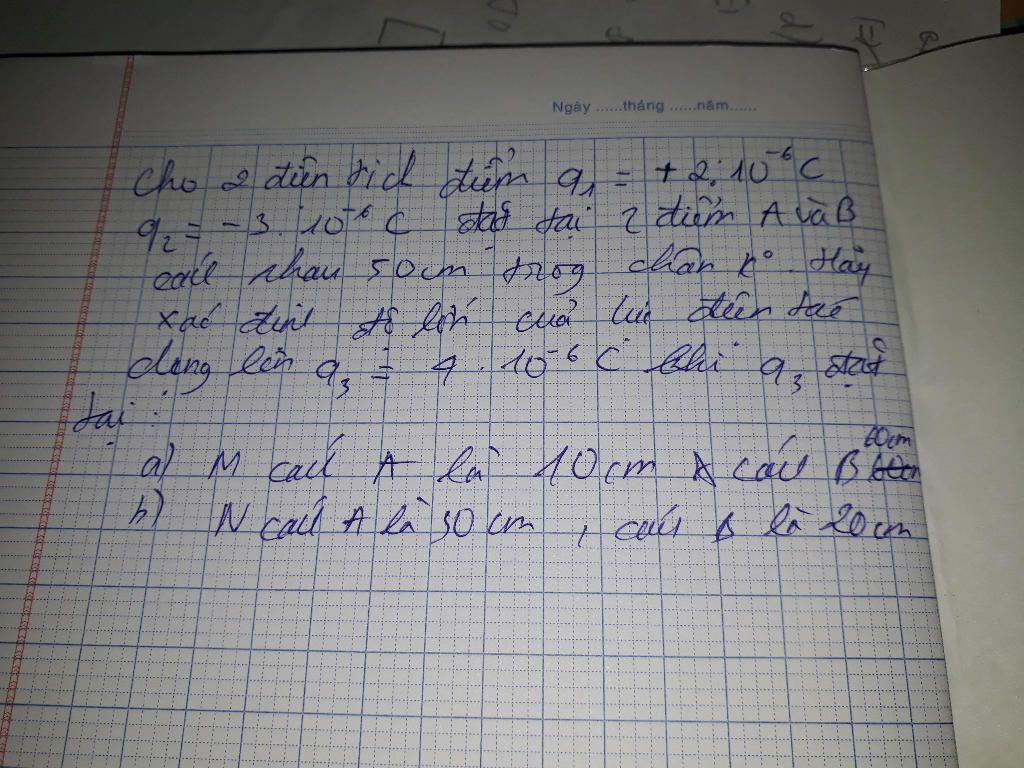 Ngày ......tháng ......năm......
Cho 2 điện tích điểm q1 = + 2.10⁻⁶ C
q2 = - 3.10⁻⁶ C đặt tại 2 điểm A và B
cách nhau 50cm trong chân k⁰. Hãy
xác định độ lớn của lực điện tác
dụng lên q3 = 4.10⁻⁶ C khi q3 đặt
tại :
60cm
a) M cách A là 10cm cách B
b) N cách A là 30cm , cách B là 20cm